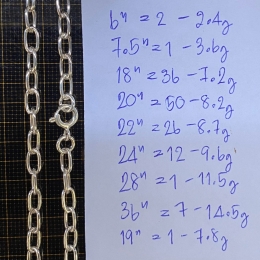 6" = 2 - 2.4g
7.5" = 1 - 3.6g
18" = 36 - 7.2g
20" = 50 - 8.2g
22" = 26 - 8.7g
24" = 12 - 9.6g
28" = 1 - 11.5g
36" = 7 - 14.5g
19" = 1 - 7.8g